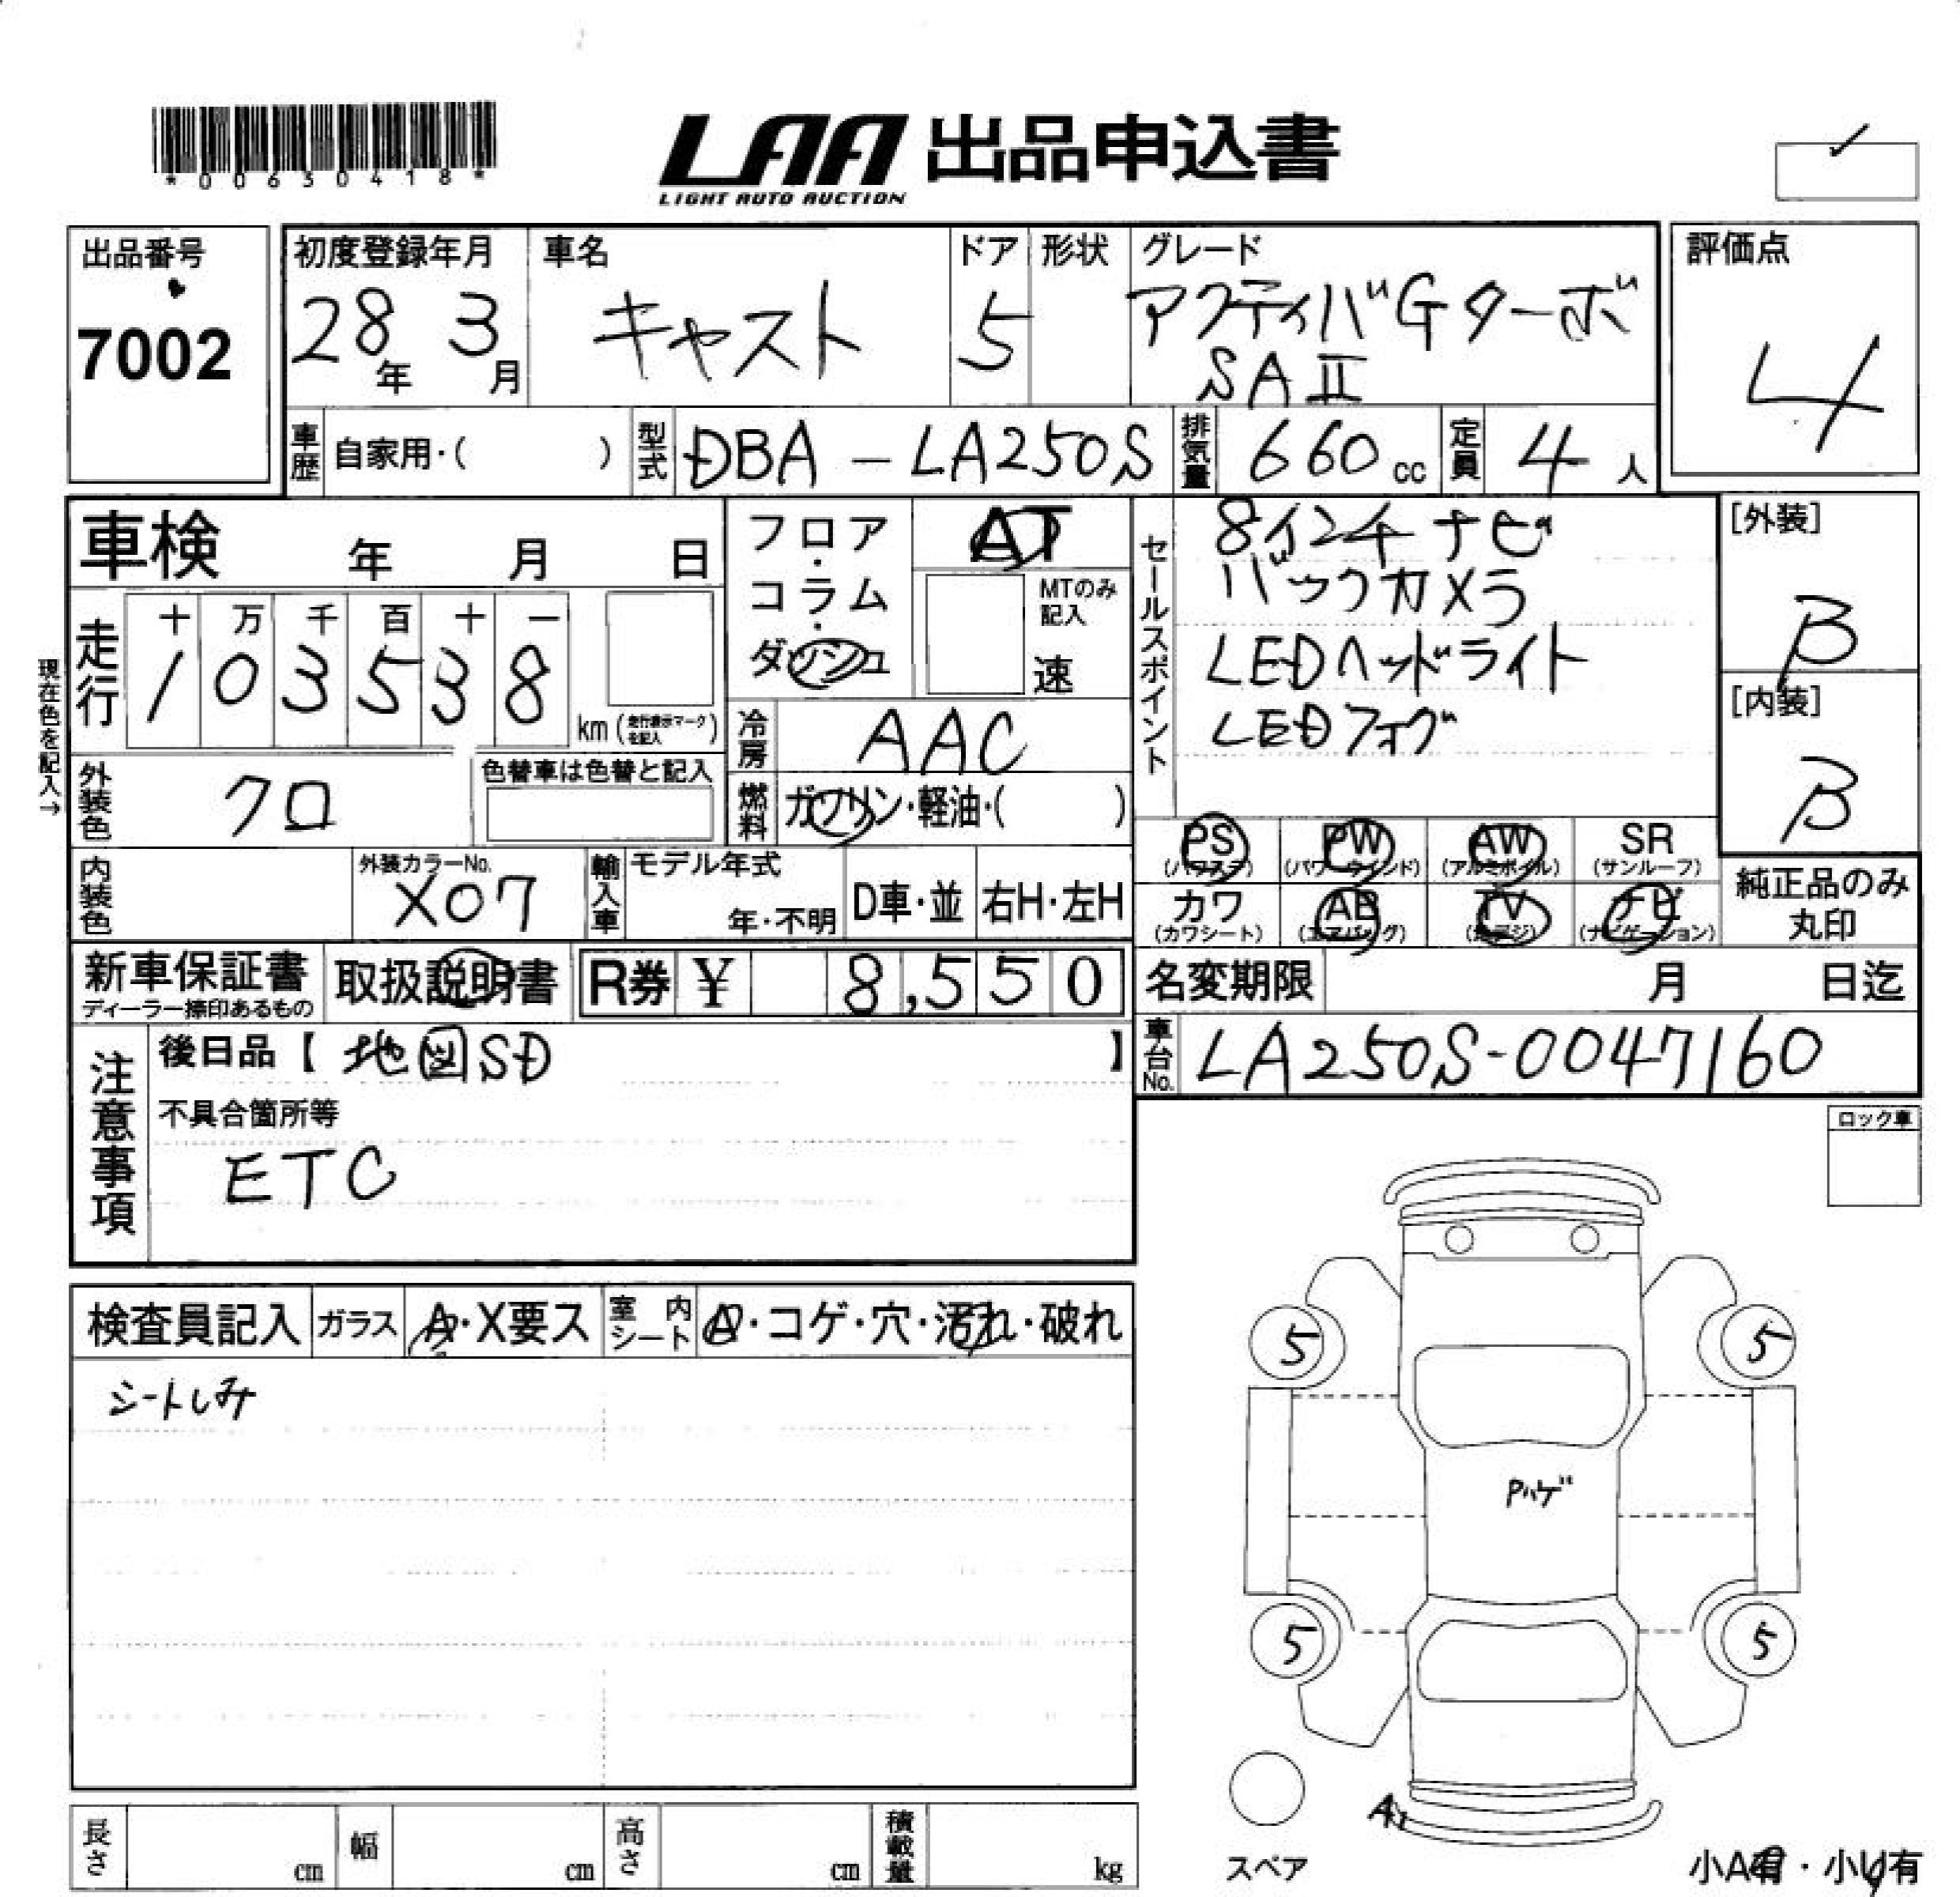 *00630418*
LAA 出品申込書
LIGHT AUTO AUCTION
出品番号
7002
初度登録年月
28年 3月
車名
キャスト
ドア
5
形状
グレード
アクティバGターボ
SAⅡ
評価点
4
車歴 自家用・( )
型式 DBA-LA250S
排気量 660cc
定員 4人
車検 年 月 日
フロア・コラム・ダッシュ
AT
MTのみ記入
速
セールスポイント
8インチナビ
バックカメラ
LEDヘッドライト
LEDフォグ
[外装]
B
[内装]
B
現在色を記入→
走行
十 万 千 百 十 一
1 0 3 5 3 8
km (走行表示マークを記入)
冷房 AAC
外装色 クロ
色替車は色替と記入
燃料 ガソリン・軽油・( )
PS (パワステ)
PW (パワーウインド)
AW (アルミホイル)
SR (サンルーフ)
カワ (カワシート)
AB (エアバッグ)
TV (地デジ)
ナビ (ナビゲーション)
純正品のみ丸印
内装色
外装カラーNo.
X07
輸入車
モデル年式
年・不明
D車・並
右H・左H
新車保証書
ディーラー捺印あるもの
取扱説明書
R券 ¥ 8,550
名変期限 月 日迄
車台No. LA250S-0047160
注意事項
後日品【 地図SD 】
不具合箇所等
ETC
ロック車
検査員記入
ガラス A・X要ス
室内シート A・コゲ・穴・汚れ・破れ
シートしみ
5
5
Pハゲ
5
5
A1
スペア
長さ cm
幅 cm
高さ cm
積載量 kg
小A有・小U有